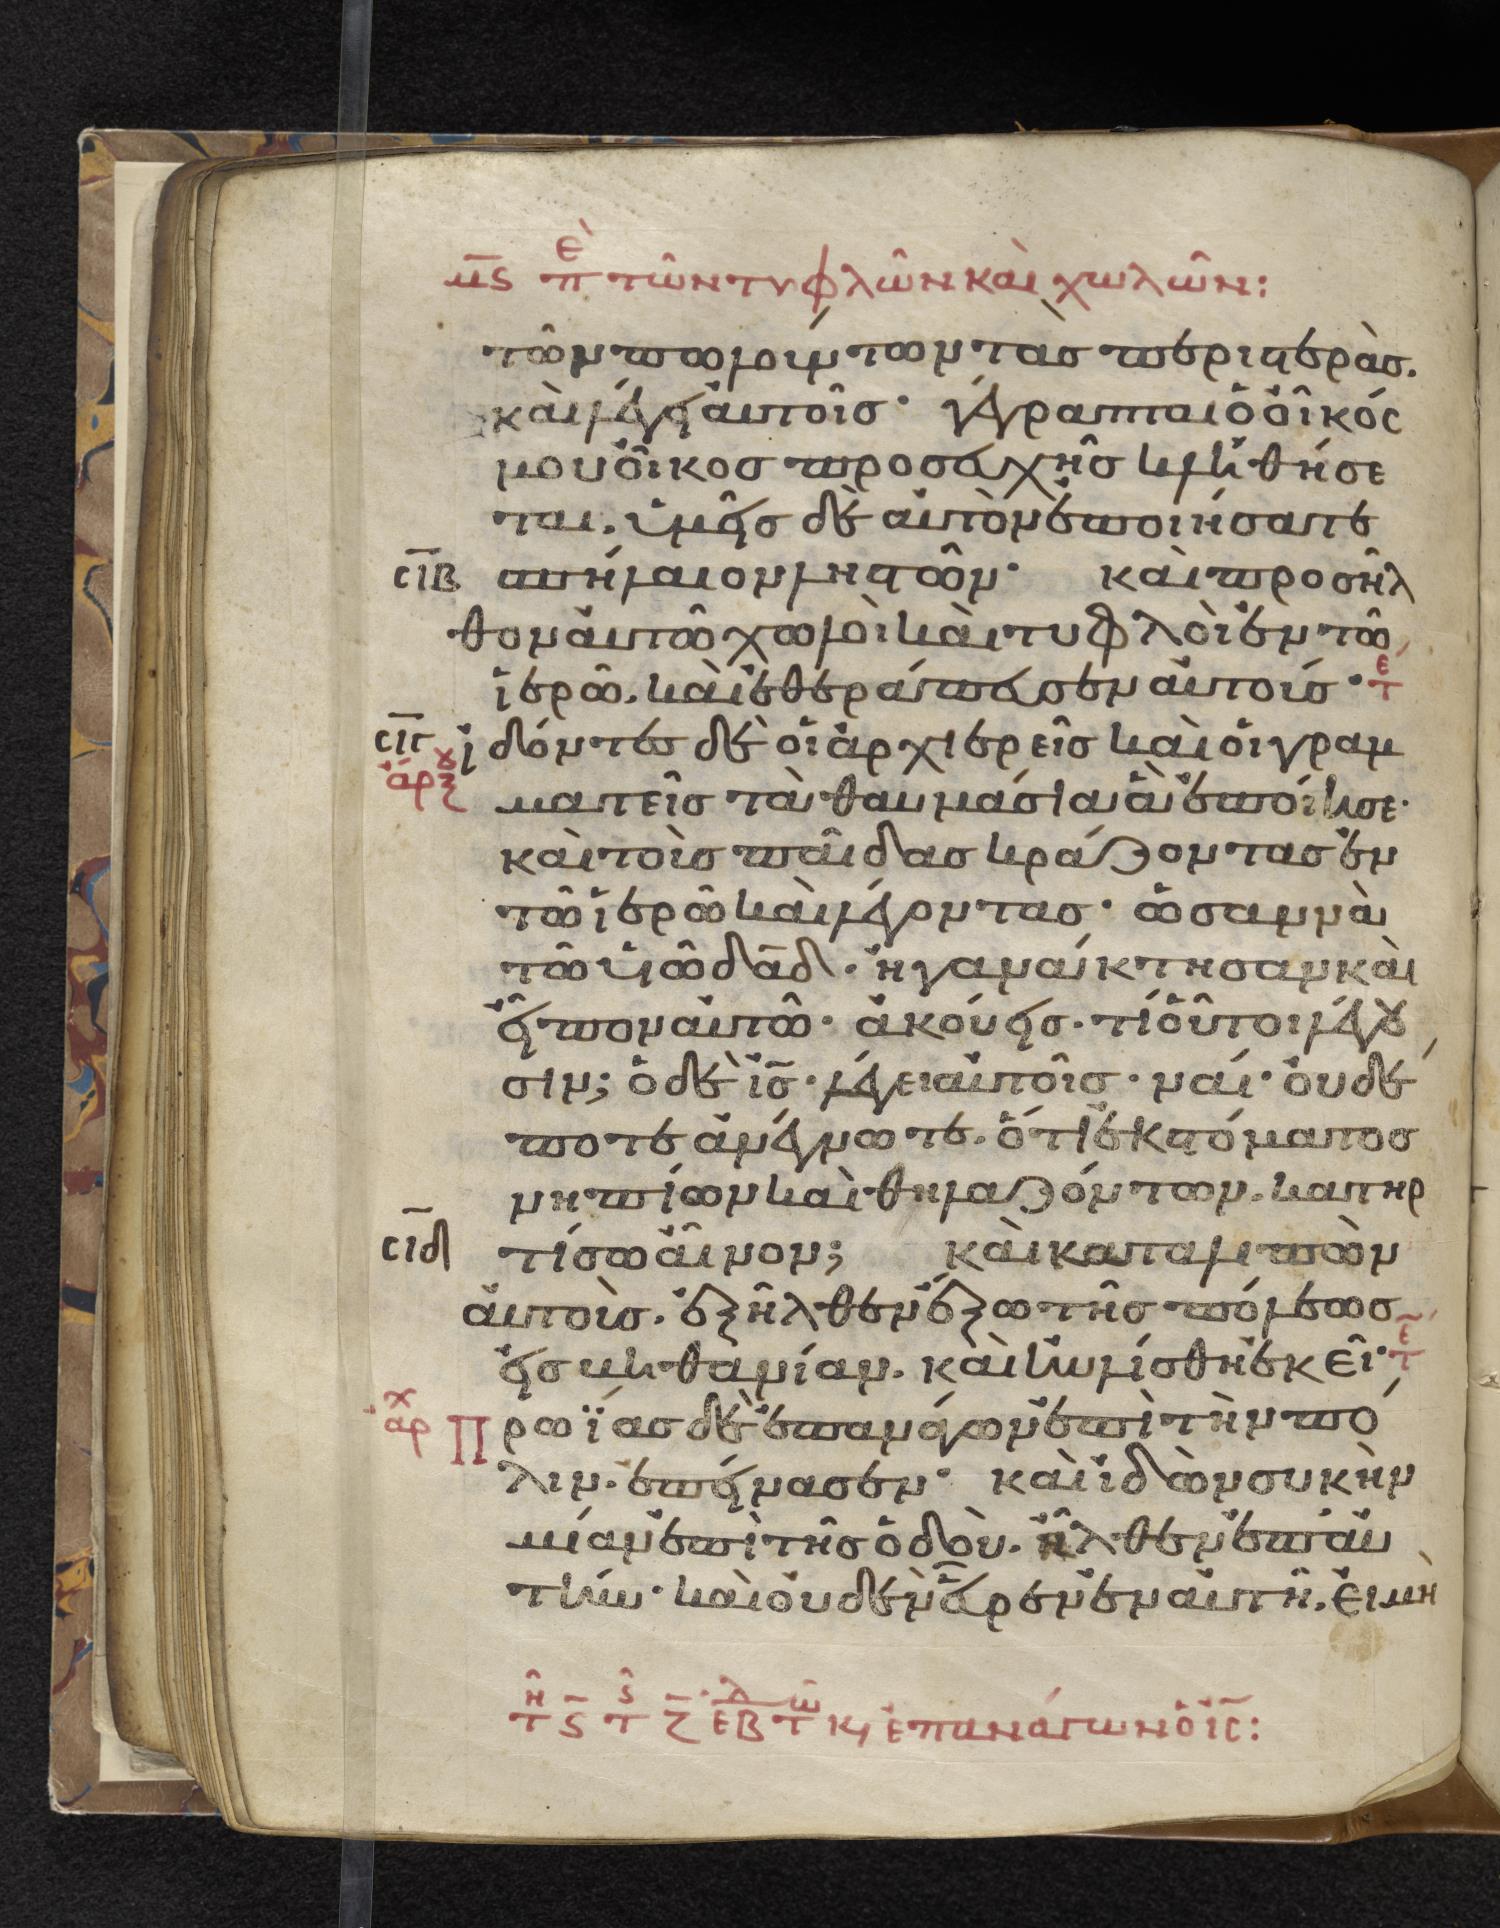 μ̅ϛ̅ πὲ τῶν τυφλῶν καὶ χωλῶν:
τῶν πωλούντων τὰσ περιστερὰσ.
καὶ λέγει αὐτοῖσ· γέγραπται ὁ οἶκός
μου οἶκοσ προσευχῆσ κληθήσε
ται. ὑμεῖσ δὲ αὐτὸν ἐποιήσατε
σ̅ι̅β̅ σπήλαιον ληστῶν· καὶ προσῆλ
θον αὐτῶ χωλοὶ καὶ τυφλοὶ ἐν τῶ
ἱερῶ. καὶ ἐθεράπευσεν αὐτούσ· τε
σ̅ι̅γ̅ ἰδόντεσ δὲ οἱ ἀρχιερεῖσ καὶ οἱ γραμ
ἀρξου
ματεῖσ τὰ θαυμάσια ἃ ἐποίησε·
καὶ τοὺσ παῖδασ κράζοντασ ἐν
τῶ ἱερῶ καὶ λέγοντασ· ὡσαννὰ
τῶ υἱῶ δα̅δ̅. ἠγανάκτησαν καὶ
εἶπον αὐτῶ· ἀκούεισ· τί οὗτοι λέγου
σιν; ὁ δὲ ι̅σ̅· λέγει αὐτοῖσ· ναί· οὐδέ
ποτε ἀνέγνωτε. ὅτι ἐκ στόματοσ
νηπίων καὶ θηλαζόντων. κατηρ
σ̅ι̅δ̅ τίσω αἶνον; καὶ καταλιπὼν
αὐτοὺσ. ἐξῆλθεν ἔξω τῆσ πόλεωσ
εἰσ βηθανίαν. καὶ ηὐλίσθη ἐκεῖ· τε
ἀρχ Πρωΐασ δὲ ἐπανάγων ἐπὶ τὴν πό
λιν. ἐπείνασεν· καὶ ἰδὼν συκὴν
μίαν ἐπὶ τῆσ ὁδοῦ. ἦλθεν ἐπ' αὐ
τήν· καὶ οὐδὲν εὗρεν ἐν αὐτῆ. εἰ μὴ
τῆ ϛ̅ τϛ ζ̅ ἑβλ τω κ, ἐπανάγων ὁ ι̅ς̅: